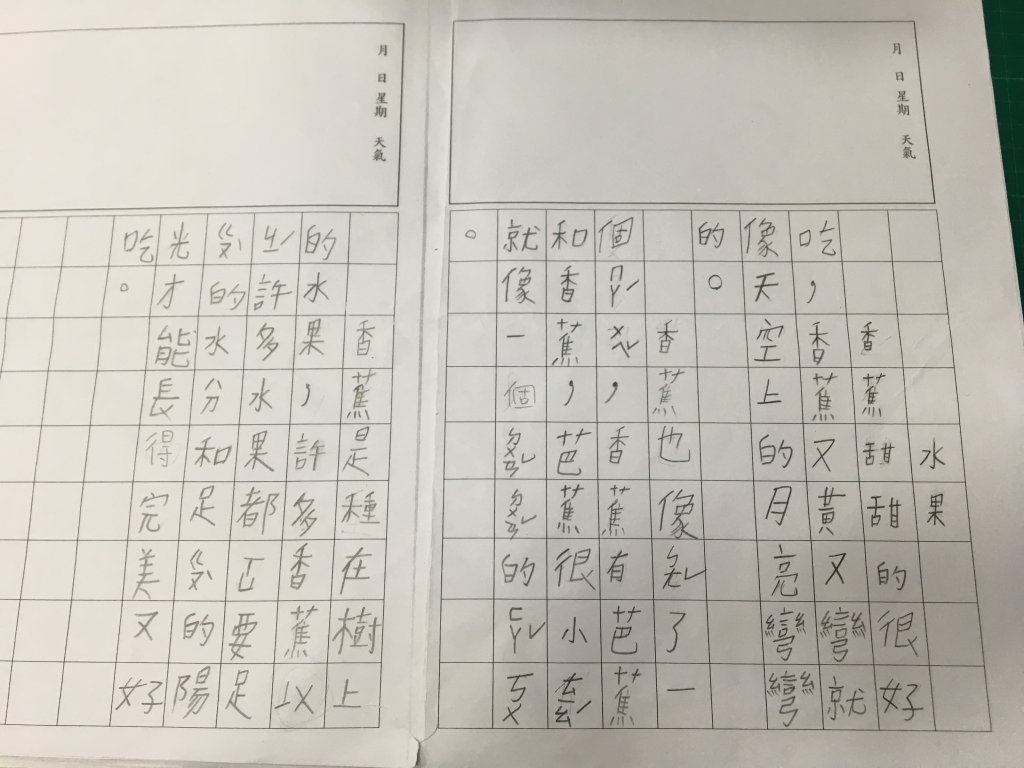 月 日 星期 天氣
水果
香蕉甜甜的很好
吃，香蕉又黃又彎就
像天空上的月亮彎彎
的。
香蕉也像了一
個，香蕉有芭蕉
和香蕉，芭蕉很小
就像一個的
。
月 日 星期 天氣
香蕉是種在樹上
的水果，許多香蕉以
許多水果都要足
的水分和足的陽
光才能長得完美又好
吃。